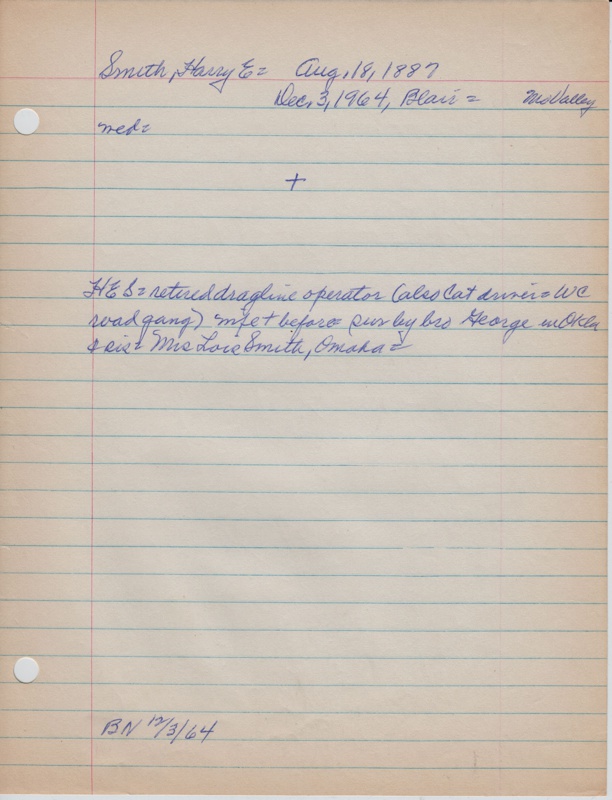 Smith, Harry E = Aug, 18, 1887
Dec, 3, 1964, Blair = Mo Valley
med =
+
HES = retired dragline operator (also Cat driver = WC
road gang) wife + before = sur by bro George in Okla
& sis = Mrs Lois Smith, Omaha =
BN 12/3/64